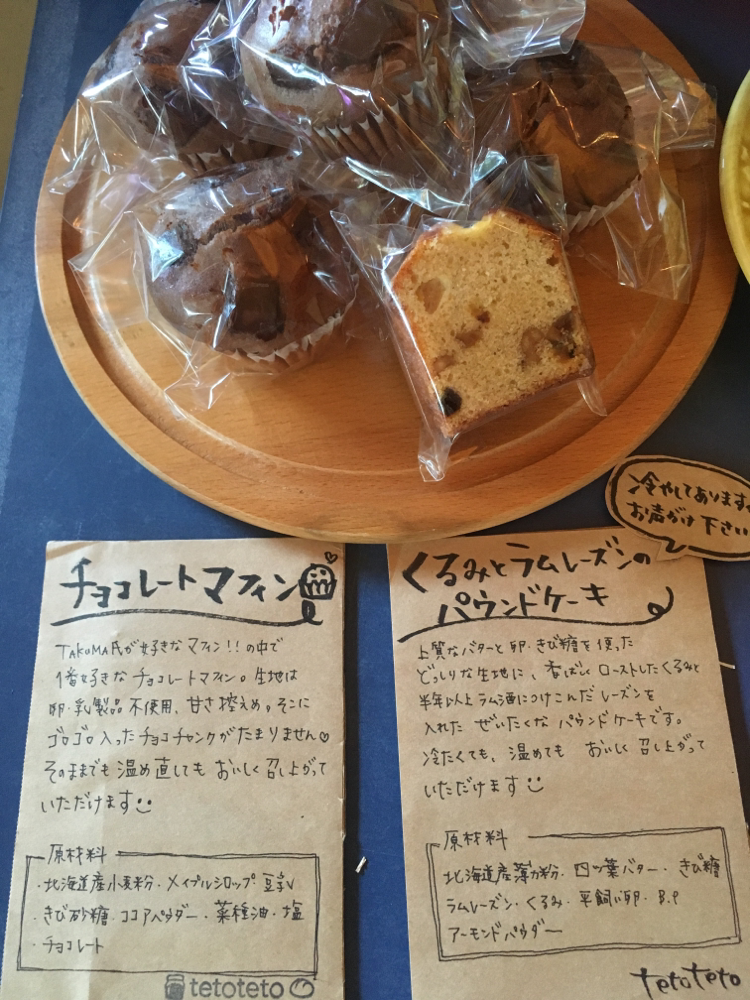 冷やしてあります。
お声がけ下さい
チョコレートマフィン
TAKUMA氏が好きなマフィン!!の中で
1番好きなチョコレートマフィン。生地は
卵・乳製品不使用、甘さ控えめ。そこに
ゴロゴロ入ったチョコチャンクがたまりません♡
そのままでも温め直してもおいしく召し上がって
いただけます
原材料
・北海道産小麦粉・メイプルシロップ 豆乳
・きび砂糖・ココアパウダー・菜種油・塩
・チョコレート
tetoteto
くるみとラムレーズンの
パウンドケーキ
上質なバターと卵・きび糖を使った
どっしりな生地に、香ばしくローストしたくるみと
半年以上ラム酒につけこんだレーズンを
入れた ぜいたくな パウンドケーキです。
冷たくても、温めても おいしく召し上がって
いただけます
原材料
北海道産薄力粉・四ッ葉バター・きび糖
ラムレーズン・くるみ・平飼い卵・B.P
アーモンドパウダー
tetoteto